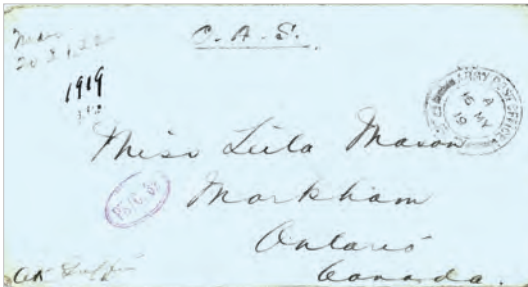 O. A. S.
1919
ARMY POST OFFICE
A
16 MY
19
Miss Lula Mason
Markham
Ontario
Canada.